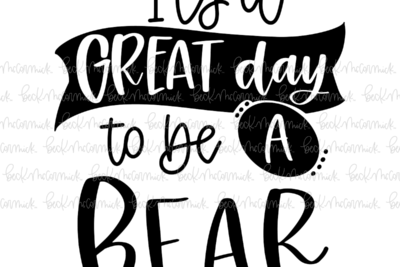 It's a
GREAT day
to be A
BEAR